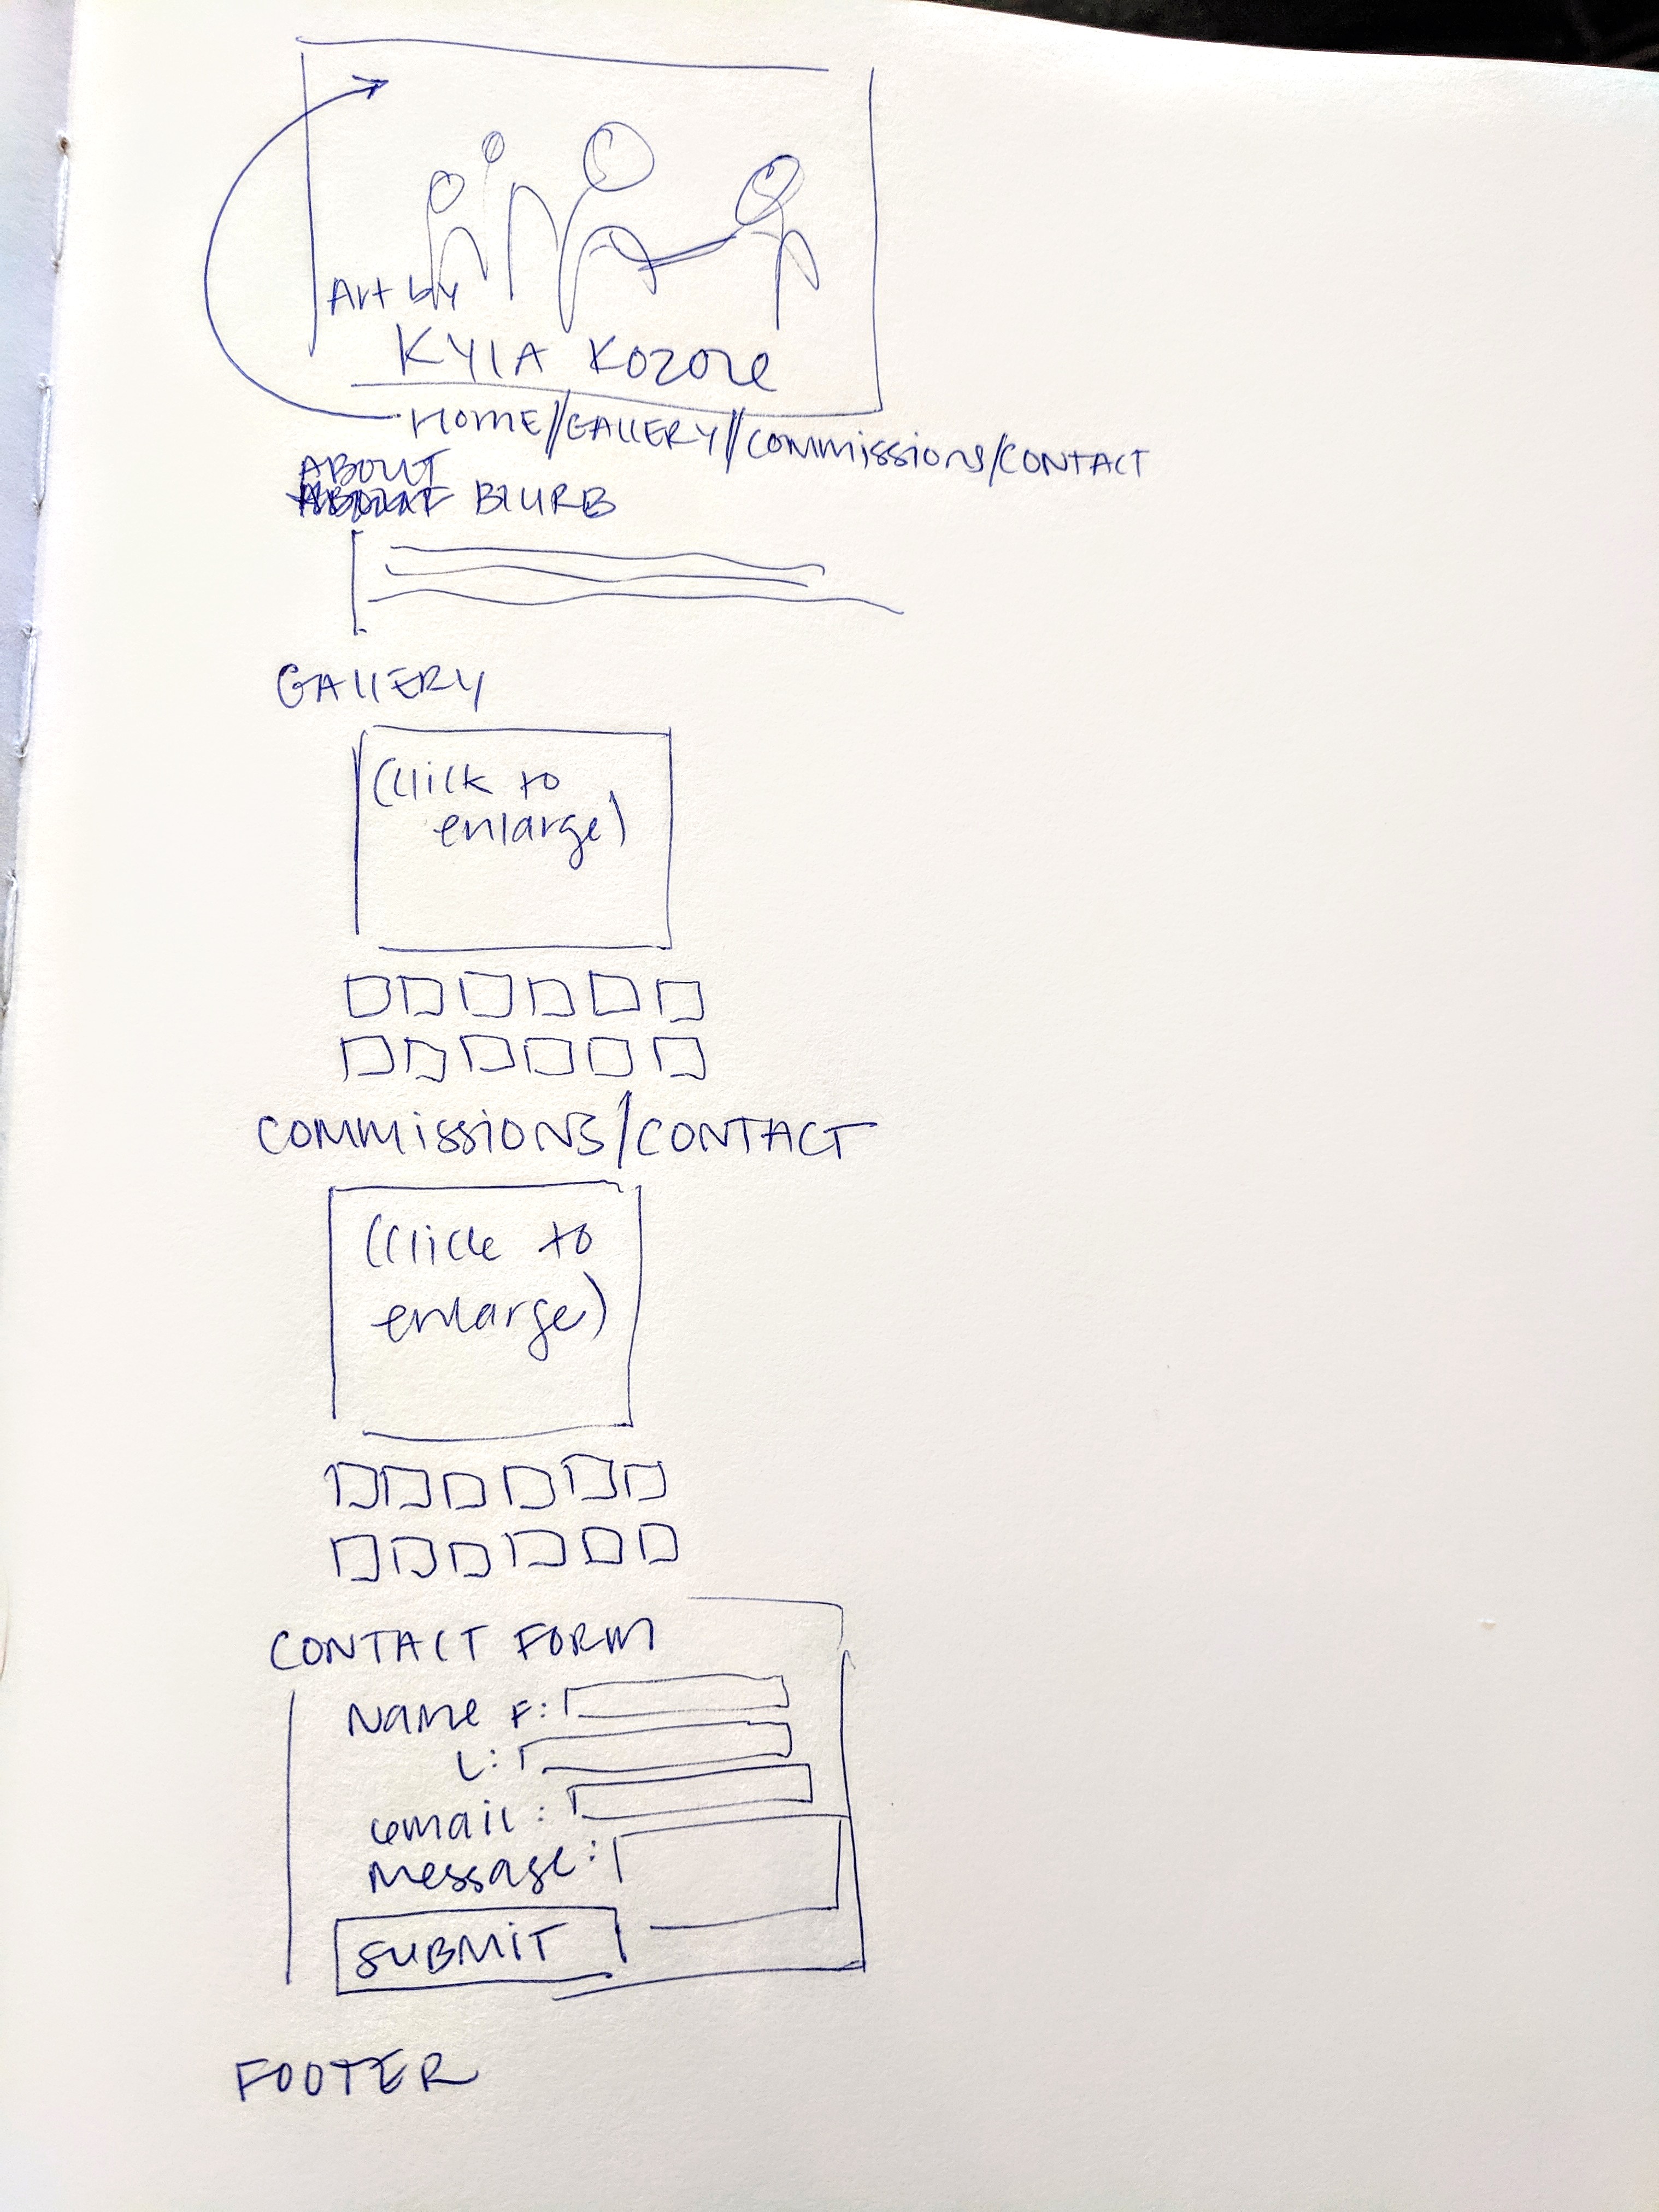 Art by
KYLA KOZORE
HOME//GALLERY//COMMISSIONS/CONTACT
ABOUT
BLURB
GALLERY
(Click to
enlarge)
COMMISSIONS/CONTACT
(Click to
enlarge)
CONTACT FORM
Name F:
L:
email:
Message:
SUBMIT
FOOTER